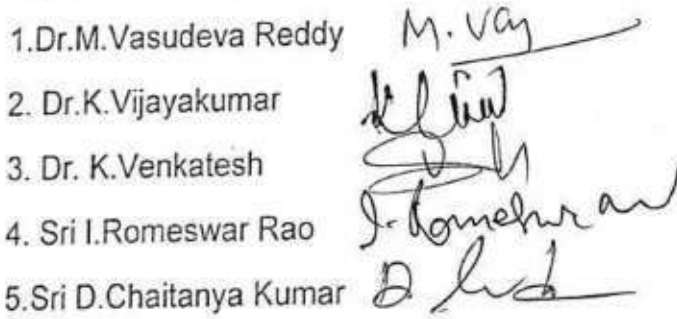 1.Dr.M.Vasudeva Reddy M.
2. Dr.K.Vijayakumar
3. Dr. K.Venkatesh
4. Sri I.Romeswar Rao I. Romeswar
5.Sri D.Chaitanya Kumar D.